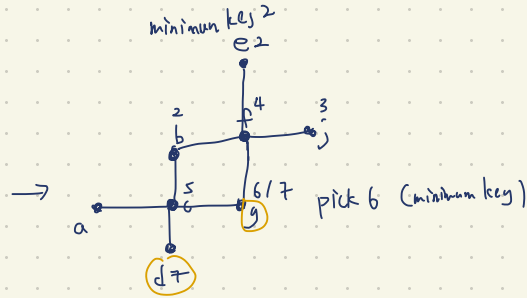 minimum key 2
e 2
f 4
3
j
2
b
5
c
6/7
g
pick 6 (minimum key)
a
d 7